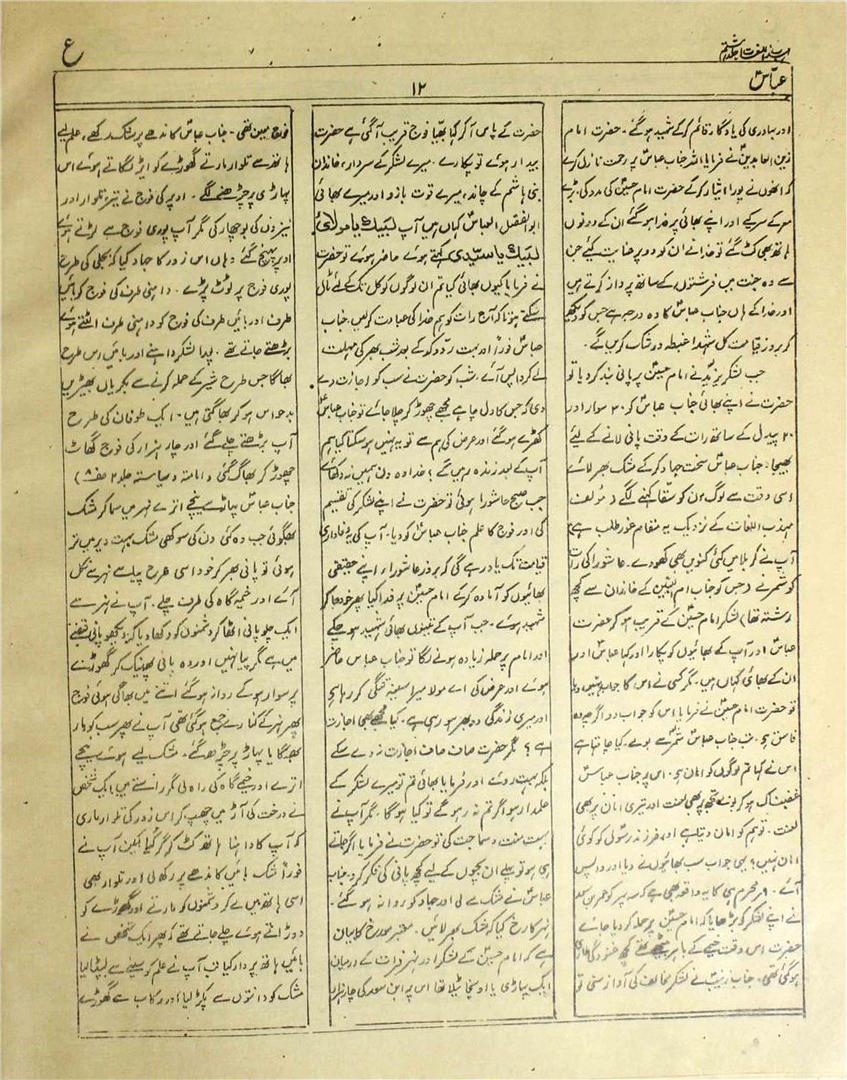 مہذب اللغات جلد ہشتم
ع
عباسؑ
۱۲
اور بہادری کی یادگار قائم کرکے شہید ہوگئے۔ حضرت امام
زین العابدینؑ نے فرمایا اللہ جناب عباسؑ پر رحمت نازل کرے
کہ انھوں نے پورا ایثار کرکے حضرت امام حسینؑ کی مدد کی، بڑے
معرکے سر کیے اور اپنے بھائی پر فدا ہوگئے ان کے دونوں
ہاتھ بھی کٹ گئے تو خدا نے ان کو دو پر عنایت کیے جن
سے وہ جنت میں فرشتوں کے ساتھ پرواز کرتے ہیں
اور خدا کے ہاں جناب عباسؑ کا وہ درجہ ہے جس کو دیکھ
کر بروز قیامت کل شہدا غبطہ و رشک کریں گے۔
جب لشکر یزید نے امام حسینؑ پر پانی بند کردیا تو
حضرت نے اپنے بھائی جناب عباسؑ کو ۳۰ سوار اور
۲۰ پیدل کے ساتھ رات کے وقت پانی لانے کے لیے
بھیجا۔ جناب عباسؑ سخت جہاد کرکے مشک بھر لائے
اسی وقت سے لوگ ان کو سقّا کہنے لگے (مؤلف
مہذب اللغات کے نزدیک یہ مقام غور طلب ہے)
آپ نے کربلا میں کئی کنویں بھی کھودے۔ عاشورا کی رات
کو شمر نے (جس کو جناب ام البنینؑ کے خاندان سے کچھ
رشتہ تھا) لشکر امام حسینؑ کے قریب ہو کر حضرت
عباسؑ اور آپ کے بھائیوں کو پکارا اور کہا عباسؑ اور
ان کے بھائی کہاں ہیں۔ مگر کسی نے اس کا جواب نہیں دیا
تو حضرت امام حسینؑ نے فرمایا اس کو جواب دو اگرچہ وہ
فاسق ہی ہو۔ تب جناب عباسؑ شمر سے بولے۔ کیا چاہتا ہے
اس نے کہا تم لوگوں کو امان ہو۔ اس پر جناب عباسؑ
غضبناک ہو کر بولے تجھ پر بھی لعنت اور تیری امان پر بھی
لعنت۔ تو ہم کو امان دیتا ہے اور فرزند رسولؐ کو کوئی
امان نہیں؟ یہی جواب سب بھائیوں نے دیا اور واپس
آئے۔ ۹ محرم ہی کا یہ واقعہ بھی ہے کہ سہ پہر کو عمر بن سعد
نے اپنے لشکر کو بڑھایا کہ امام حسینؑ پر حملہ کر دیا جائے
حضرت اس وقت خیمے کے باہر بیٹھے تھے کچھ غنودگی طاری
ہوگئی تھی۔ جناب زینبؑ نے لشکر مخالف کی آواز سنی تو
حضرت کے پاس آکر کہا بھیا فوج قریب آگئی ہے حضرت
بیدار ہوئے تو پکارے۔ میرے لشکر کے سردار، خاندان
بنی ہاشم کے چاند، میرے قوت بازو اور میرے بھائی
ابوالفضل العباسؑ کہاں ہیں آپ لبیک یا مولائی،
لبیک یا سیدی کہتے ہوئے حاضر ہوئے تو حضرت
نے فرمایا کیوں بھائی کیا تم ان لوگوں کو کل تک کے لئے ٹال
سکتے ہو تاکہ آج رات کو ہم خدا کی عبادت کرلیں۔ جناب
عباسؑ فوراً اور بہت ردوکد کے بعد شب بھر کی مہلت
لے کر واپس آئے۔ شب کو حضرت نے سب کو اجازت دے
دی کہ جس کا دل چاہے مجھے چھوڑ کر چلا جائے تو جناب عباسؑ
کھڑے ہوگئے اور عرض کی ہم سے تو یہ نہیں ہوسکتا کیا ہم
آپ کے بعد زندہ رہیں گے؟ خدا وہ دن ہمیں نہ دکھائے
جب صبح عاشورا ہوئی تو حضرت نے اپنے لشکر کی تقسیم
کی اور فوج کا علم جناب عباسؑ کو دیا۔ آپ کی یہ وفاداری
قیامت تک یاد رہے گی کہ بروز عاشورا، اپنے حقیقی
بھائیوں کو آمادہ کرکے امام حسینؑ پر فدا کیا پھر خود جا کر
شہید ہوئے۔ جب آپ کے تینوں بھائی شہید ہو چکے
اور امام پر حملہ زیادہ ہونے لگا تو جناب عباسؑ حاضر
ہوئے اور عرض کی اے مولا میرا سینہ تنگی کر رہا ہے
اور میری زندگی دوبھر ہو رہی ہے۔ کیا مجھے بھی اجازت
ہے؟ مگر حضرت صاف صاف اجازت نہ دے سکے
بلکہ بہت روئے اور فرمایا بھائی تم تو میرے لشکر کے
علمدار ہو اگر تم نہ رہو گے تو کیا ہوگا۔ مگر آپ نے
بہت منت و سماجت کی تو حضرت نے فرمایا اگر جاتے
ہی ہو تو پہلے ان بچوں کے لیے کچھ پانی کی فکر کرو۔ جناب
عباسؑ نے مشک لے لی اور جہاد کو روانہ ہوگئے۔
نہر کا رخ کیا کہ مشک بھر لائیں۔ معتبر مورخ کا بیان
ہے کہ امام حسینؑ کے لشکر اور نہر فرات کے درمیان
ایک پہاڑی یا اونچا ٹیلا تھا اس پر ابن سعد کی چار ہزار
فوج معین تھی۔ جناب عباسؑ کاندھے پر مشک رکھے، علم لیے
ہاتھ سے تلوار مارتے گھوڑے کو ایڑ لگاتے ہوئے اس
پہاڑی پر چڑھنے لگے۔ اوپر کی فوج نے تیر، تلوار اور
نیزوں کی بوچھار کی مگر آپ پوری فوج سے لڑتے ہوئے
اوپر پہنچ گئے وہاں اس زور کا جہاد کیا کہ بجلی کی طرح
پوری فوج پر ٹوٹ پڑے۔ داہنی طرف کی فوج کو بائیں
طرف اور بائیں طرف کی فوج کو داہنی طرف الٹتے ہوئے
بڑھتے جاتے تھے۔ پورا لشکر داہنے اور بائیں اس طرح
بھاگا جس طرح شیر کے حملہ کرنے سے بکریاں بھیڑیں
بدحواس ہو کر بھاگتی ہیں۔ ایک طوفان کی طرح
آپ بڑھتے چلے گئے اور چار ہزار کی فوج گھاٹ
چھوڑ کر بھاگ گئی (امامتہ و سیاستہ جلد ۲ صفہ ۸)
جناب عباسؑ پہاڑ سے نیچے اترے نہر میں سما کر مشک
بھگوئی جب وہ کئی دن کی سوکھی مشک بہت دیر میں تر
ہوئی تو پانی بھر کر خود اسی طرح پیاسے نہر سے نکل
آئے اور خیمہ گاہ کی طرف چلے۔ آپ نے نہر سے
ایک چلو پانی اٹھا کر دشمنوں کو دکھا دیا کہ دیکھو پانی قبضے
میں ہے مگر پیا نہیں اور وہ پانی پھینک کر گھوڑے
پر سوار ہو کے روانہ ہوگئے اتنے میں بھاگی ہوئی فوج
پھر نہر کے کنارے جمع ہوگئی تھی آپ نے پھر سب کو مار
بھگایا پہاڑ پر چڑھ گئے۔ مشک لیے ہوئے نیچے
اترے اور خیمے گاہ کی راہ لی مگر راستے میں ایک شخص
نے درخت کی آڑ میں چھپ کر اس زور کی تلوار ماری
کہ آپ کا داہنا ہاتھ کٹ کر گر گیا لیکن آپ نے
فوراً مشک بائیں کاندھے پر رکھ لی اور تلوار بھی
اسی ہاتھ میں لے کر دشمنوں کو مارتے اور گھوڑے کو
دوڑاتے ہوئے چلے جاتے تھے کہ پھر ایک شخص نے
بائیں ہاتھ پر وار کیا تب آپ نے علم کو سینے سے لپٹا لیا
مشک کو دانتوں سے پکڑ لیا اور رکاب سے گھوڑے